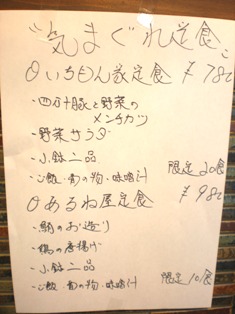 気まぐれ定食
①いちもん家定食 ¥780
・四万十豚と野菜の
メンチカツ
・野菜サラダ
・小鉢二品
・ご飯・香の物・味噌汁 限定20食
②あるね屋定食 ¥980
・鯛のお造り
・鶏の唐揚げ
・小鉢二品
・ご飯・香の物・味噌汁 限定10食